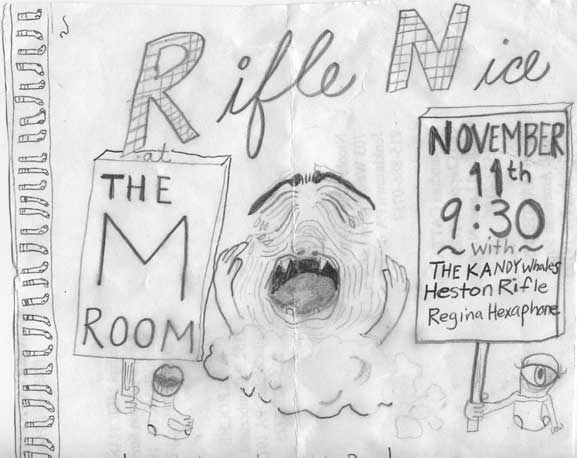 Rifle Nice
at
THE
M
ROOM
NOVEMBER
11th
9:30
~ with ~
THE KANDY Whales
Heston Rifle
Regina Hexaphone